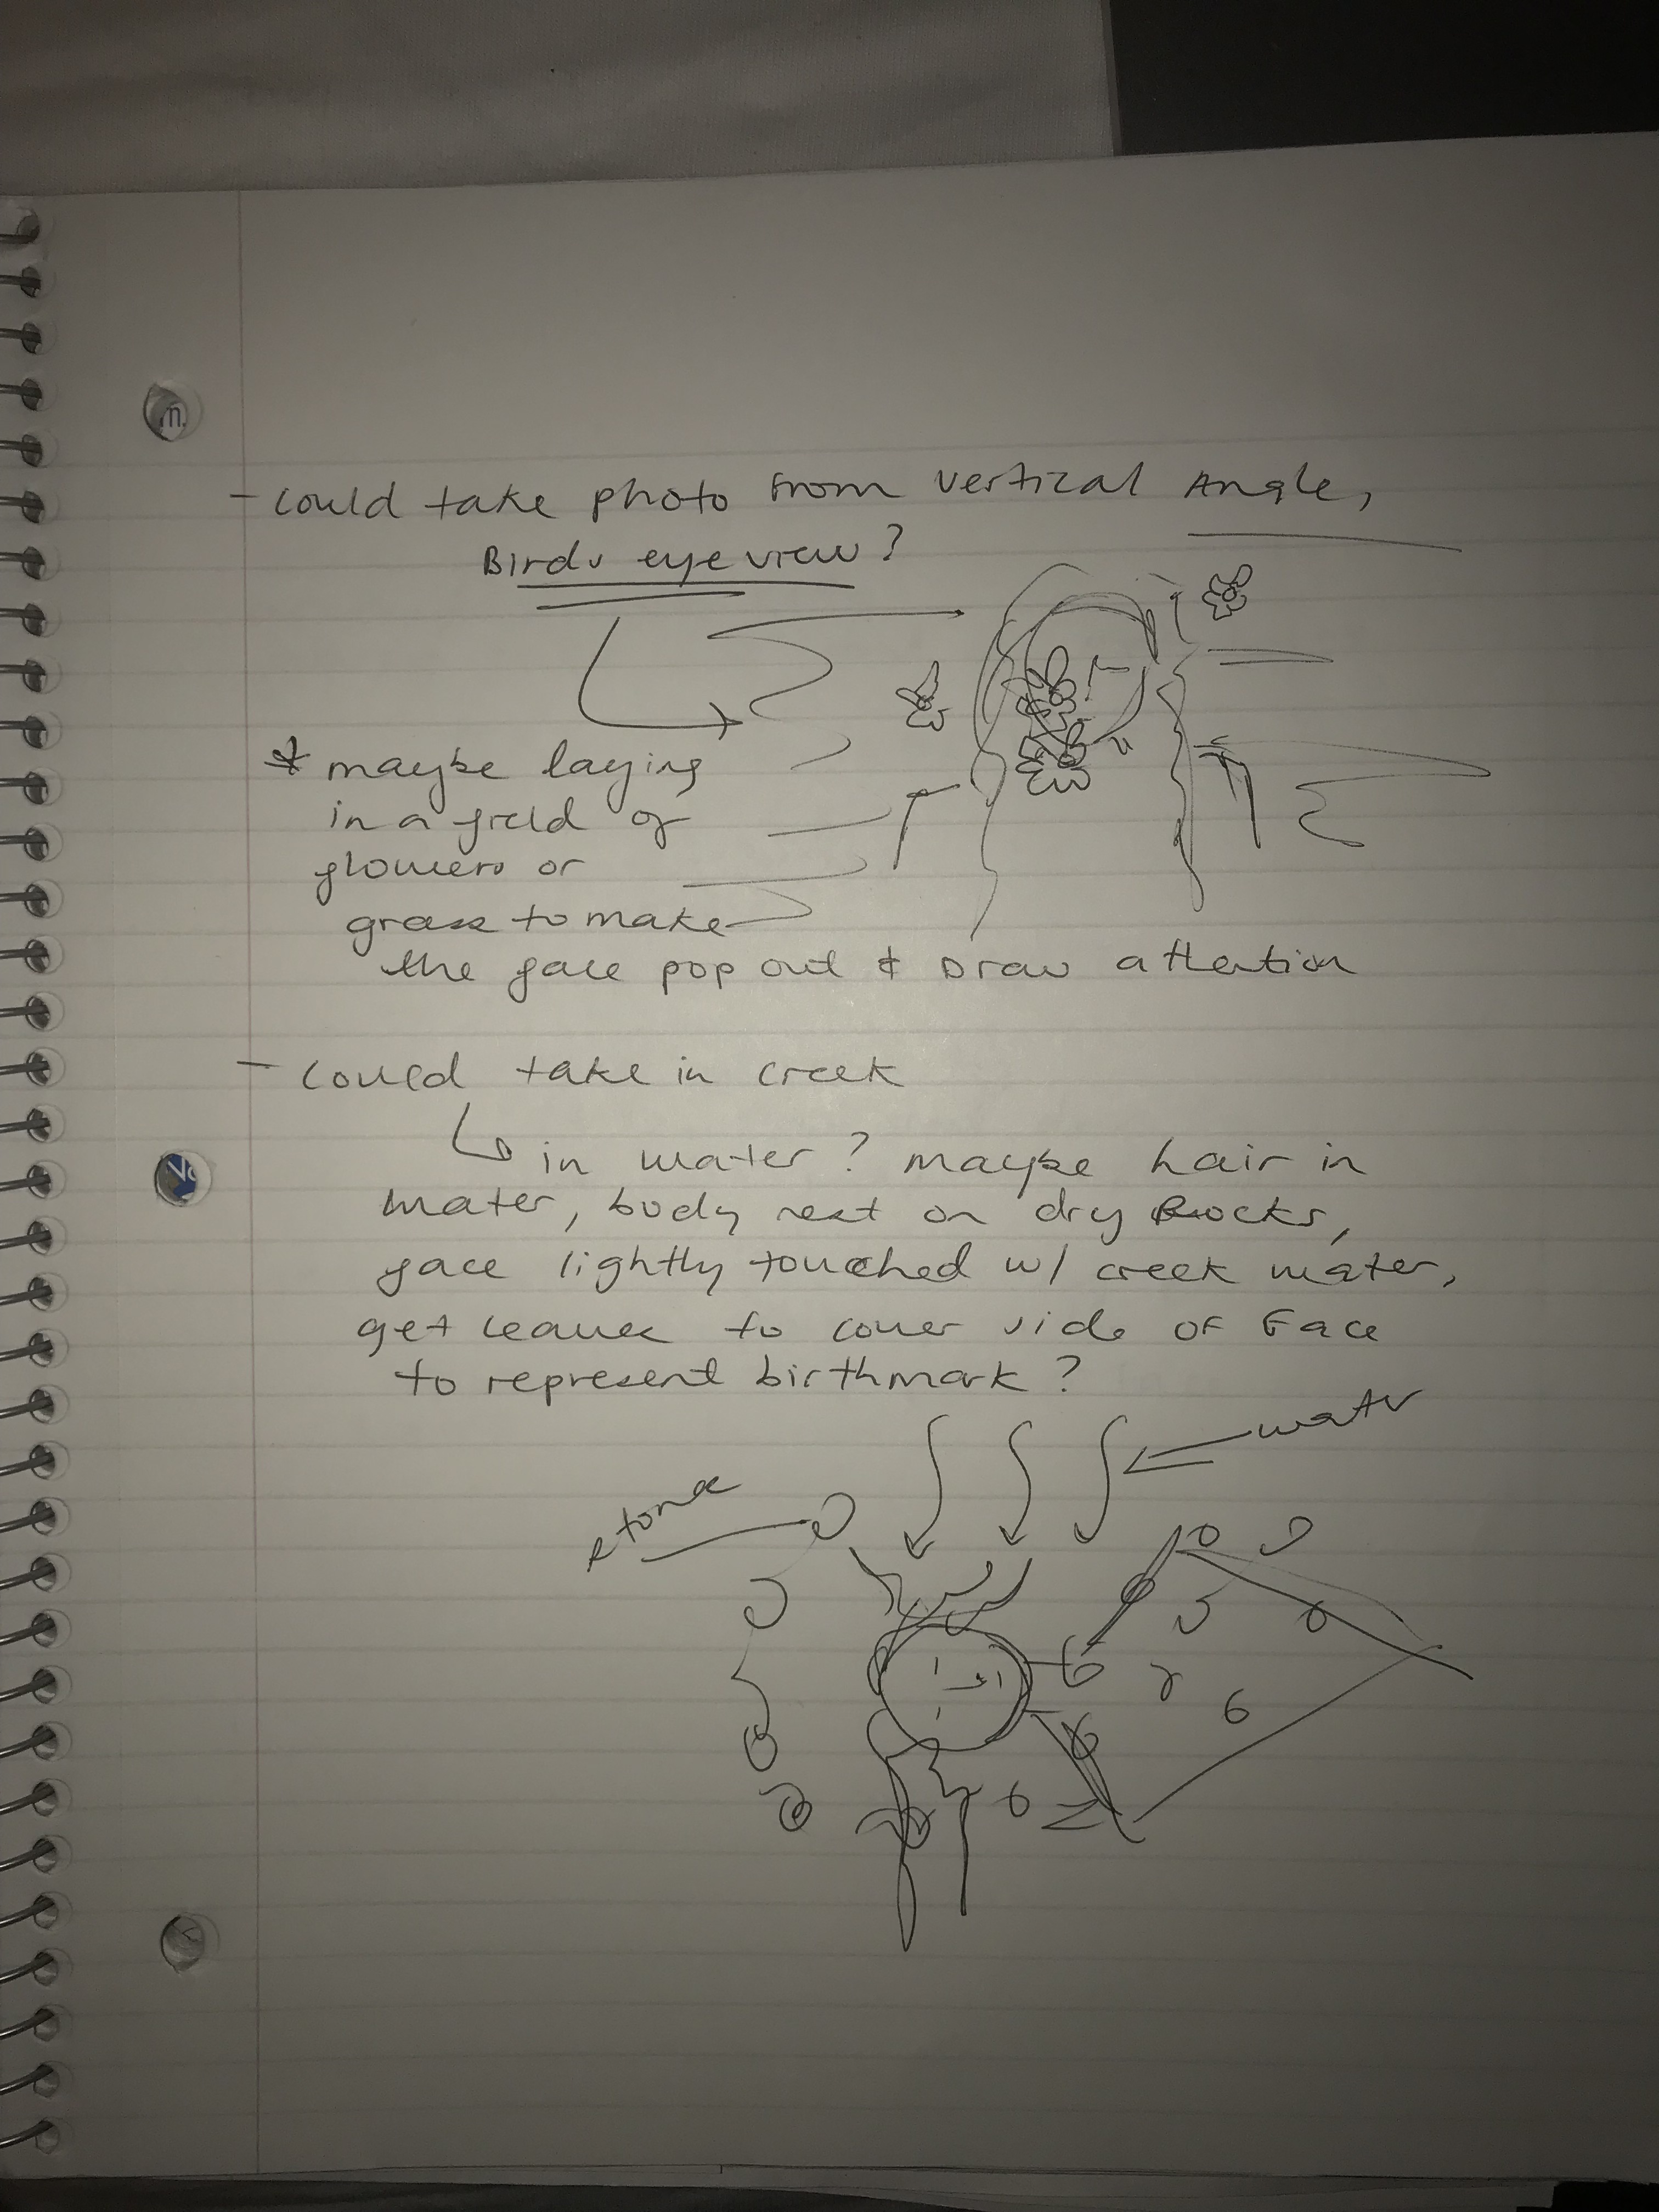 - could take photo from vertical Angle,
Birds eye view?
* maybe laying
in a field of
flowers or
grass to make
the face pop out & Draw attention
- could take in creek
in water? maybe hair in
water, body rest on dry Rocks,
face lightly touched w/ creek water,
get leaves to cover side of Face
to represent birthmark?
water
stone